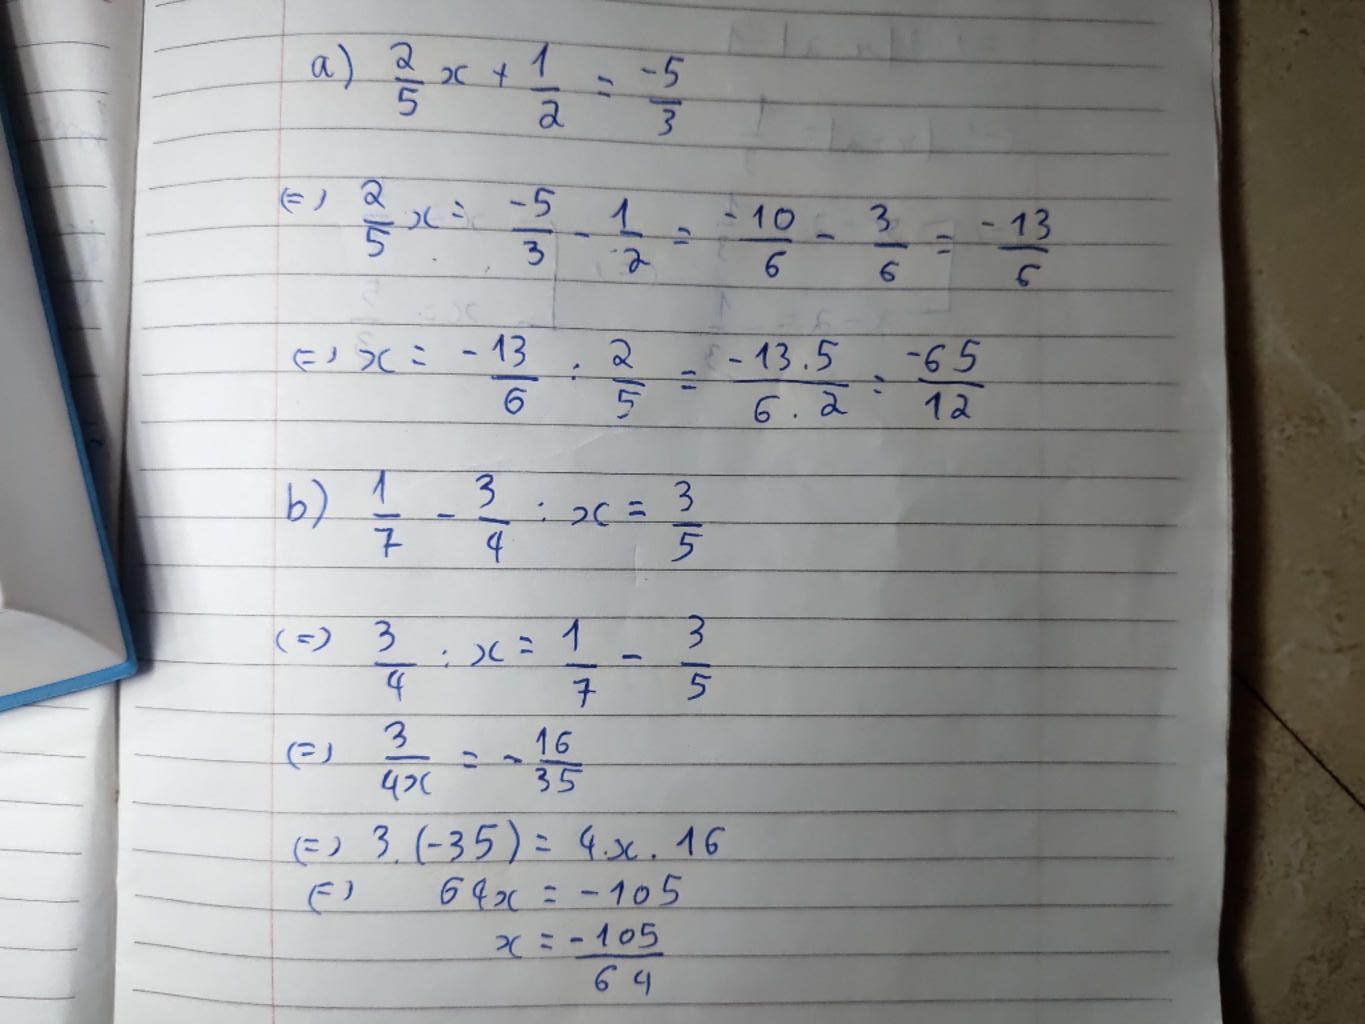 a) 2/5 x + 1/2 = -5/3
(=) 2/5 x = -5/3 - 1/2 = -10/6 - 3/6 = -13/6
(=) x = -13/6 : 2/5 = -13.5/6.2 = -65/12
b) 1/7 - 3/4 : x = 3/5
(=) 3/4 : x = 1/7 - 3/5
(=) 3/4x = - 16/35
(=) 3.(-35) = 4.x.16
(=) 64x = -105
x = -105/64